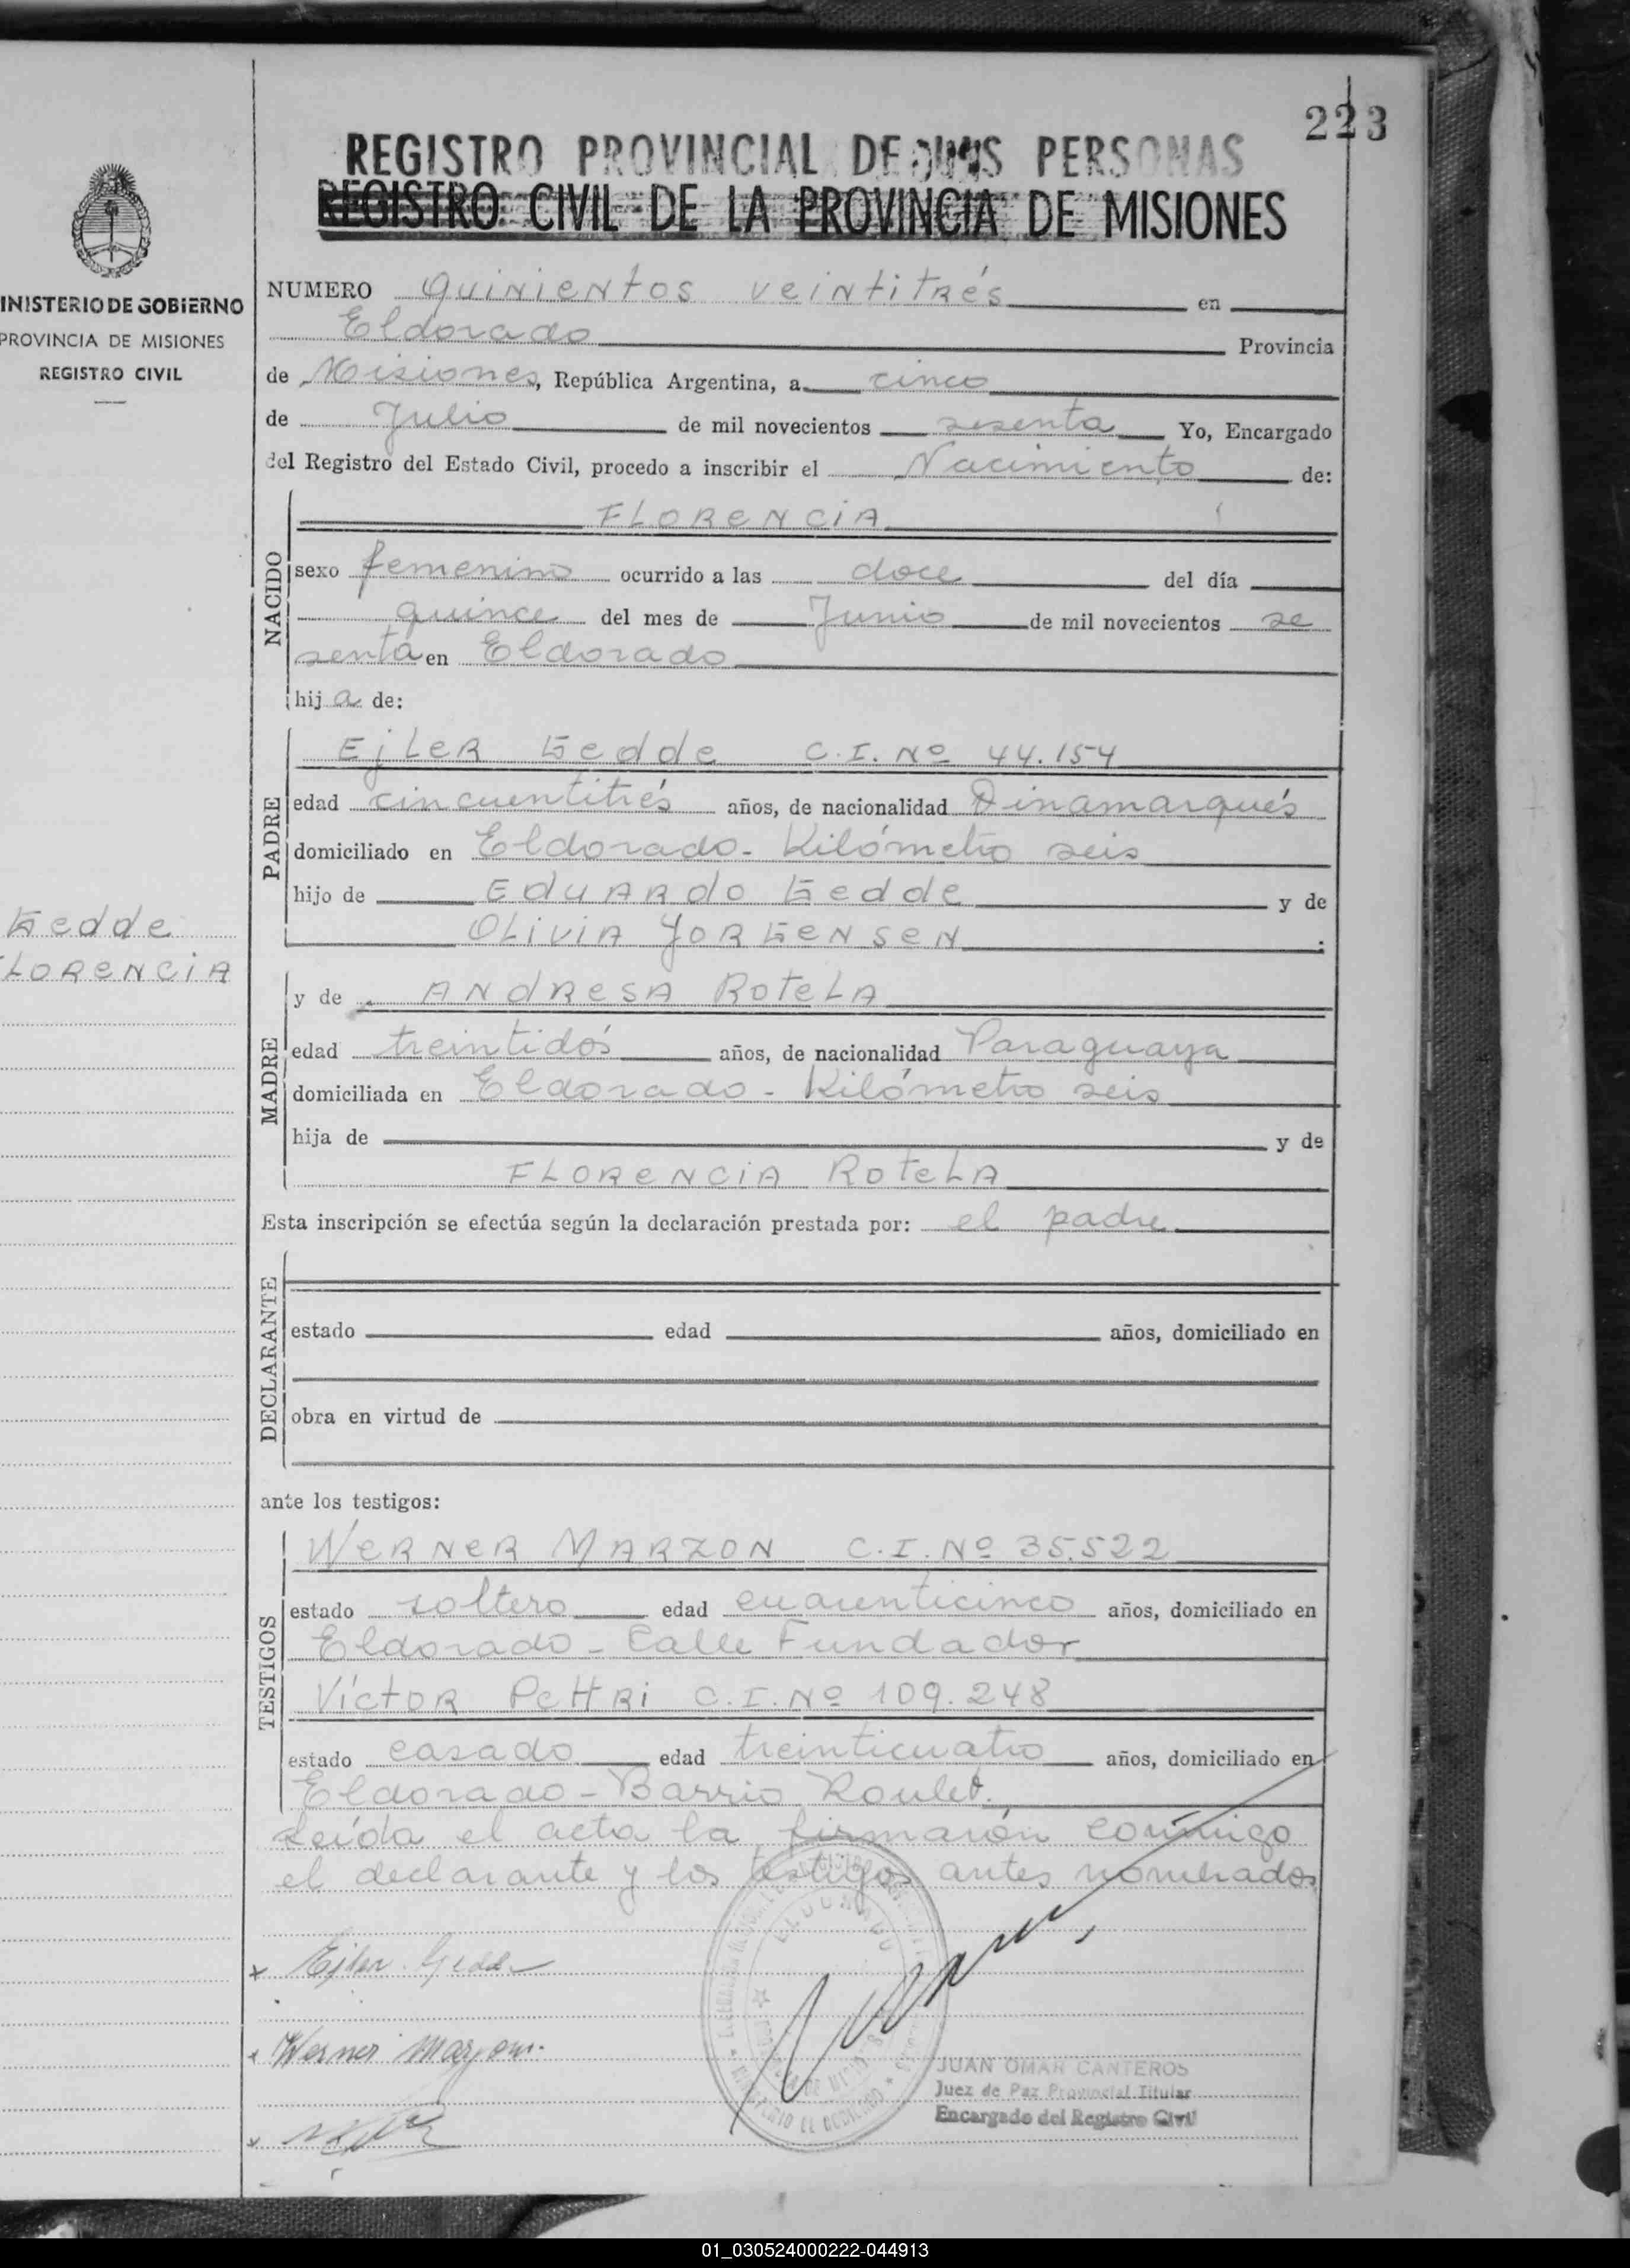 223
REGISTRO PROVINCIAL DE LAS PERSONAS
REGISTRO CIVIL DE LA PROVINCIA DE MISIONES
INISTERIO DE GOBIERNO
PROVINCIA DE MISIONES
REGISTRO CIVIL
Gedde
FLORENCIA
NUMERO quinientos veintitrés en
Eldorado Provincia
de Misiones, República Argentina, a cinco
de Julio de mil novecientos sesenta Yo, Encargado
del Registro del Estado Civil, procedo a inscribir el Nacimiento de:
NACIDO
FLORENCIA
sexo femenino ocurrido a las doce del día
quince del mes de Junio de mil novecientos se
senta en Eldorado
hija de:
PADRE
Ejler Gedde C.I. Nº 44.154
edad cincuentitrés años, de nacionalidad Dinamarqués
domiciliado en Eldorado - Kilómetro seis
hijo de Eduardo Gedde y de
Olivia Jorgensen
MADRE
y de Andresa Rotela
edad treintidós años, de nacionalidad Paraguaya
domiciliada en Eldorado - Kilómetro seis
hija de y de
FLORENCIA Rotela
Esta inscripción se efectúa según la declaración prestada por: el padre
DECLARANTE
estado edad años, domiciliado en
obra en virtud de
ante los testigos:
TESTIGOS
WERNER MARZON C.I. Nº 35.522
estado soltero edad cuarenticinco años, domiciliado en
Eldorado - Calle Fundador
Víctor Pettri C.I. Nº 109.248
estado casado edad treinticuatro años, domiciliado en
Eldorado - Barrio Roulet.
Leída el acta la firmarón conmigo
el declarante y los testigos antes nombrados
ELDORADO
x Ejler Gedde
x Werner Marzon.
x
JUAN OMAR CANTEROS
Juez de Paz Provincial Titular
Encargado del Registro Civil
01_030524000222-044913